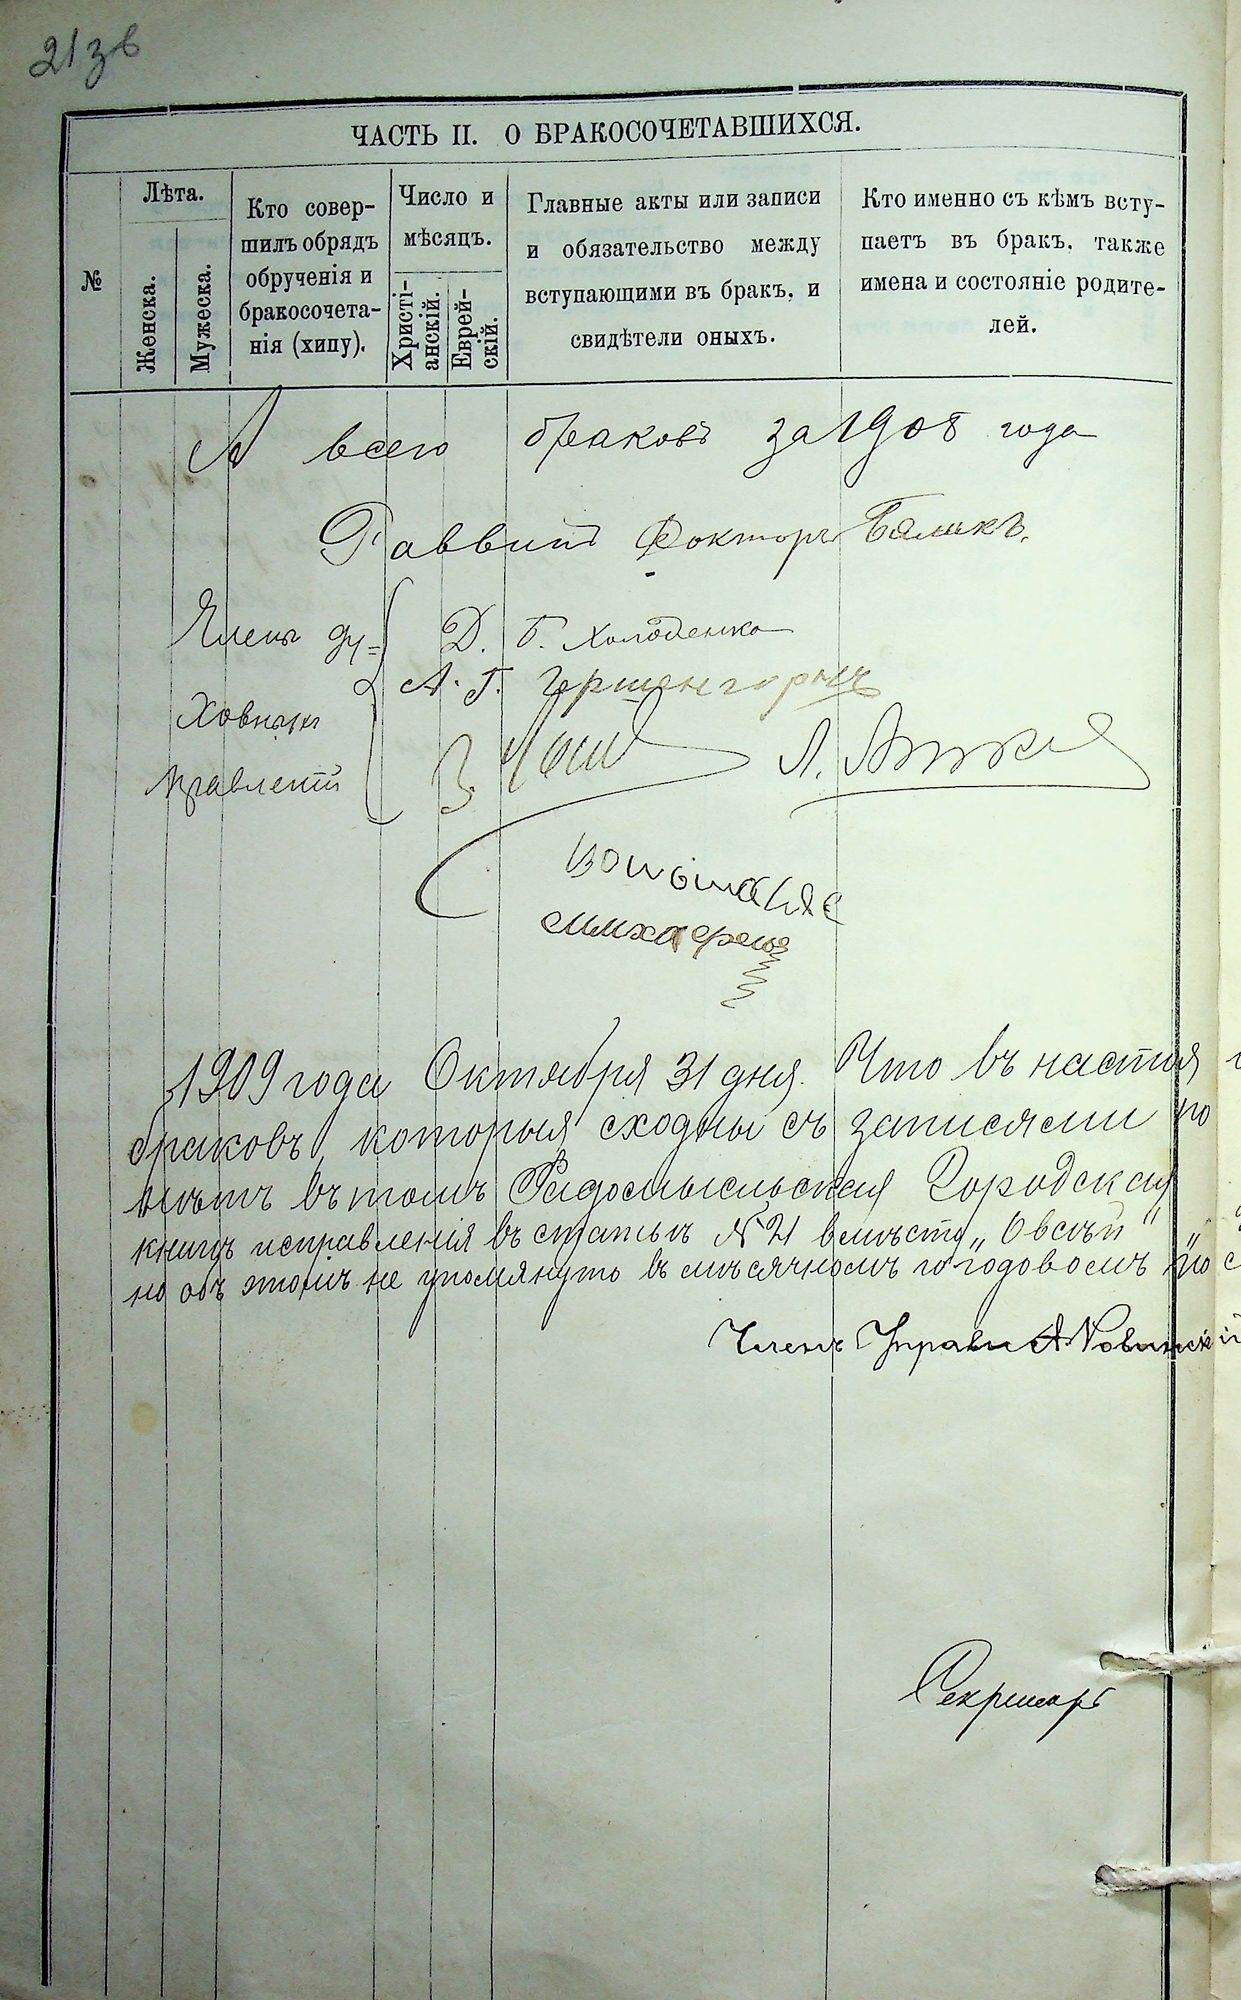 213в
ЧАСТЬ II. О БРАКОСОЧЕТАВШИХСЯ.
№
Лѣта.
Женска.
Мужеска.
Кто совер-
шилъ обрядъ
обрученія и
бракосочета-
нія (хипу).
Число и
мѣсяцъ.
Христі-
анскій.
Еврей-
скій.
Главные акты или записи
и обязательство между
вступающими въ бракъ, и
свидѣтели оныхъ.
Кто именно съ кѣмъ всту-
паетъ въ бракъ, также
имена и состояніе родите-
лей.
А всего браковъ за 1908 года
Раввинъ Докторъ Бяликъ.
Члены ду=
ховнаго
правленія
Д. Б. Холоденко
А. Г. Гершенгорнъ
1909 года Октября 31 дня. Что въ настоя
браковъ, которыя сходны съ записями по
нѣтъ въ томъ Радомысльская Городская
книгѣ исправленія въ статьѣ № 21 вмѣсто „Овсѣй"
но объ этомъ не упомянуто въ мѣсячномъ и годовомъ
Членъ Управы А Новинскій
Секретарь